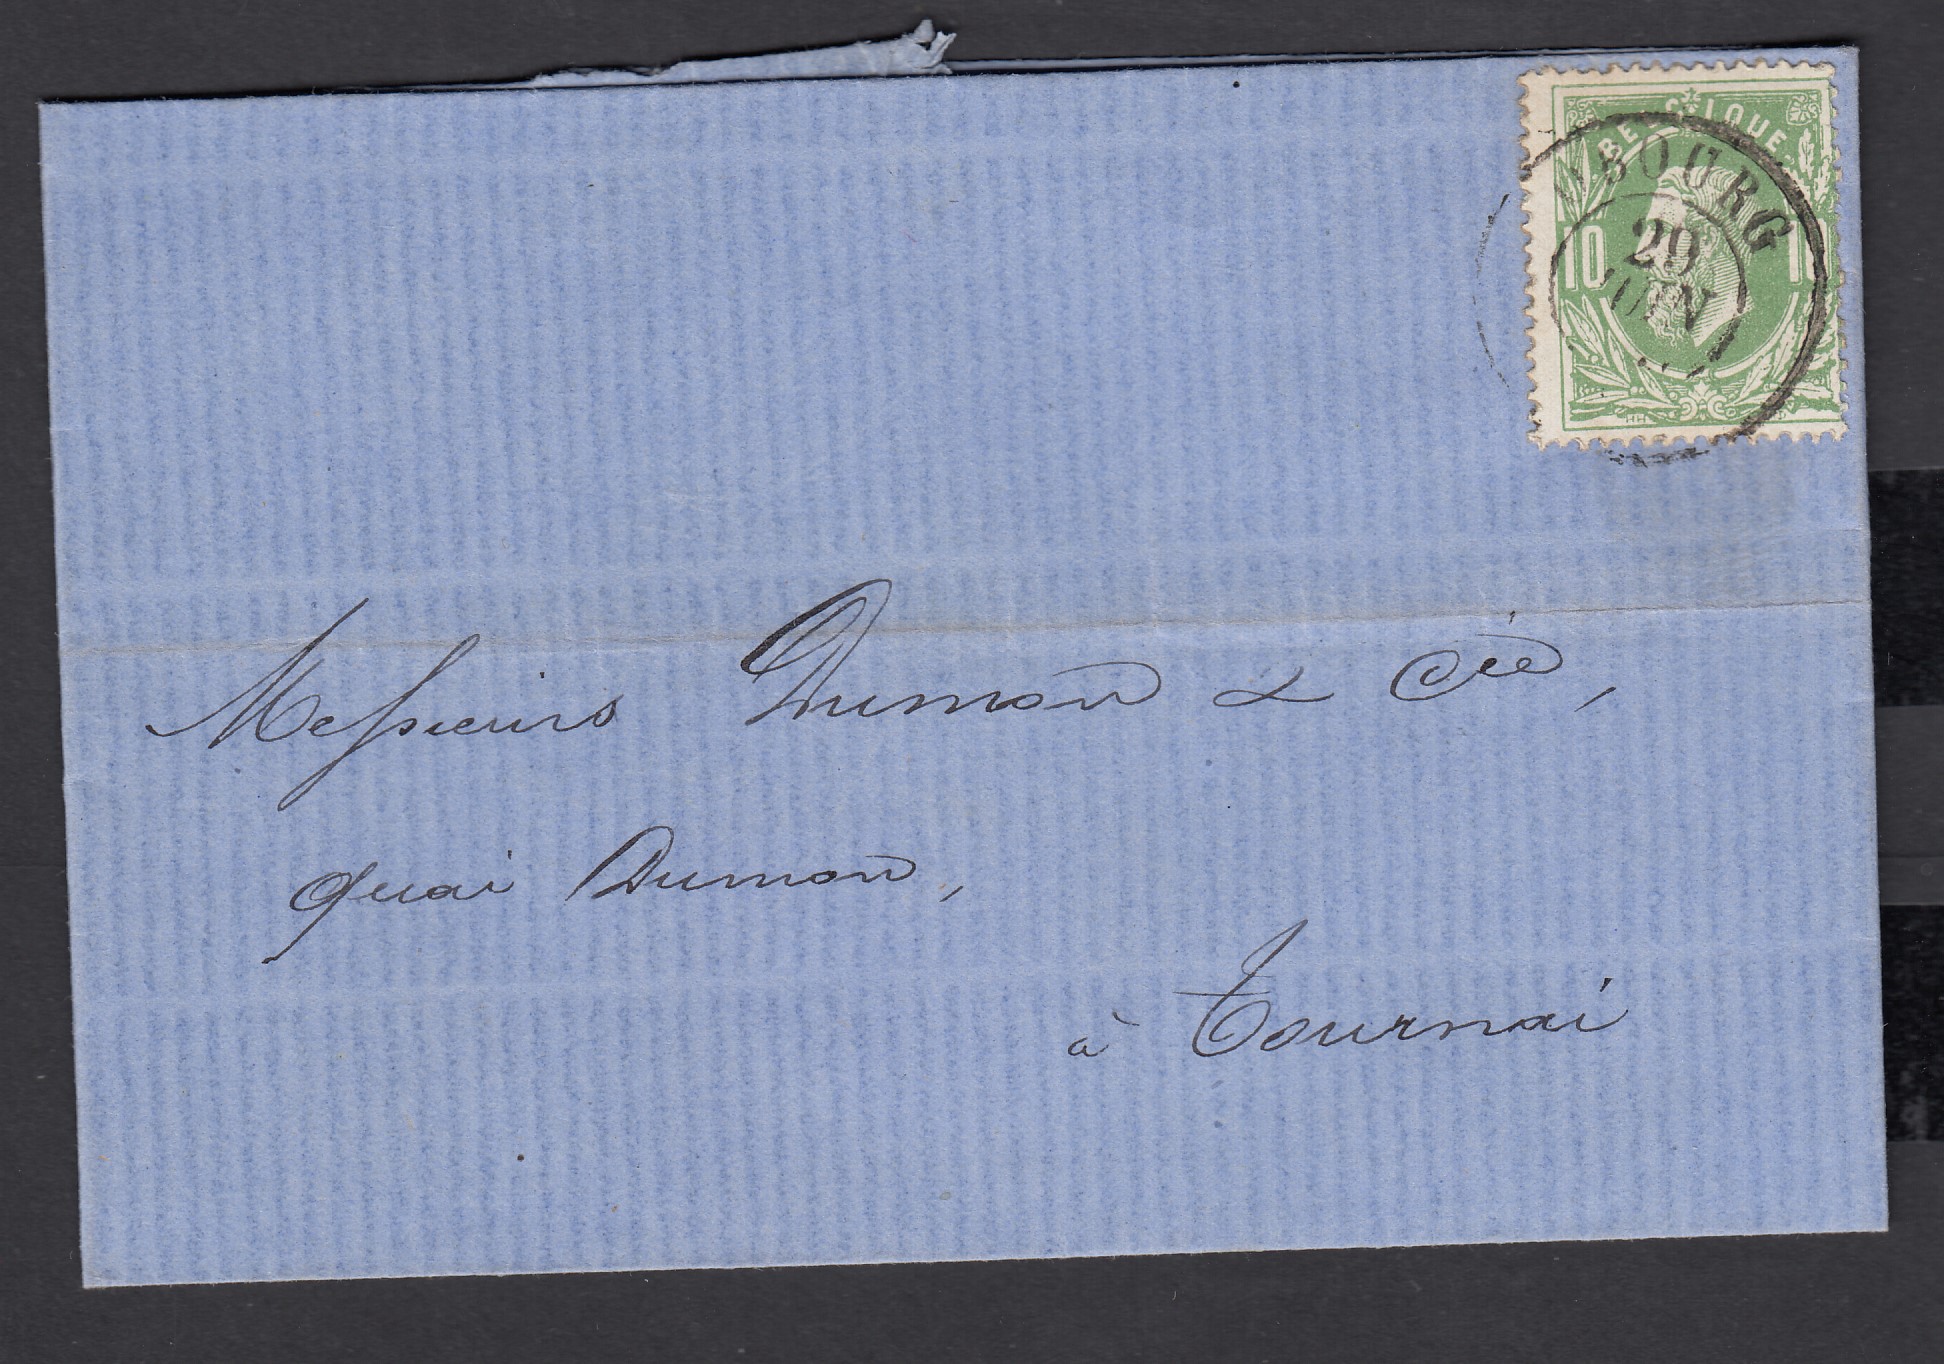 BELGIQUE
BOURG
10 10
20
JUIN
Messieurs Dumon & Cie,
quai Dumon,
à Tournai